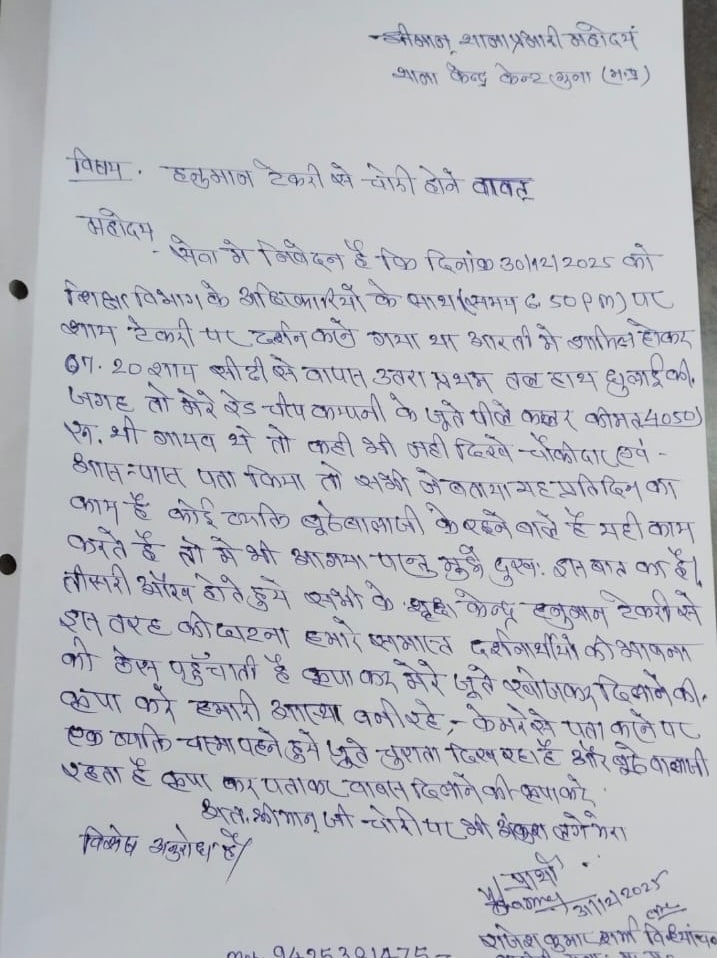 श्रीमान् थाना प्रभारी महोदय
थाना केन्द्र केन्ट गुना (म.प्र)
विषय. हनुमान टेकरी से चोरी होने वावत्
महोदय
सेवा मे निवेदन है कि दिनांक 30/12/2025 को
शिक्षा विभाग के अधिकारियों के साथ (समय 6.50pm) पर
शाम टेकरी पर दर्शन करने गया था आरती मे शामिल होकर
07.20 शाम सीढी से वापस उतरा प्रथम तल हाथ धुलाई की.
जगह तो मेरे रेड चीप कम्पनी के जूते पीले कलर कीमत 4050)
रू. थी गायब थे तो कही भी नही दिखे चौकीदार एवं -
आस-पास पता किया तो सभी ने बताया यह प्रतिदिन का
काम है कोई व्यक्ति बूढेबालाजी के रहने बाले है यही काम
करते है तो मे भी आ गया परन्तु मुझे दुःख इस बात का है।
तीसरी आँख होते हुये सभी के केन्द्र हनुमान टेकरी से
इस तरह की घटना हमारे समस्त दर्शनार्थीयो की भावना
को ठेस पहुँचाती है कृपा कर मेरे जूते खोजकर दिलाने की.
कृपा करे हमारी आस्था बनी रहे, - केमरे से पता करने पर
एक व्यक्ति चश्मा पहने हुये जूते चुराता दिख रहा है और बूढे बालाजी
रहता है कृपा कर पताकर वापस दिलाने की कृपा करे.
अतः श्रीमान् जी चोरी पर भी अंकुश लगे मेरा
विशेष अनुरोध है।
प्रार्थी
31/12/2025
राजेश कुमार शर्मा
9425391475